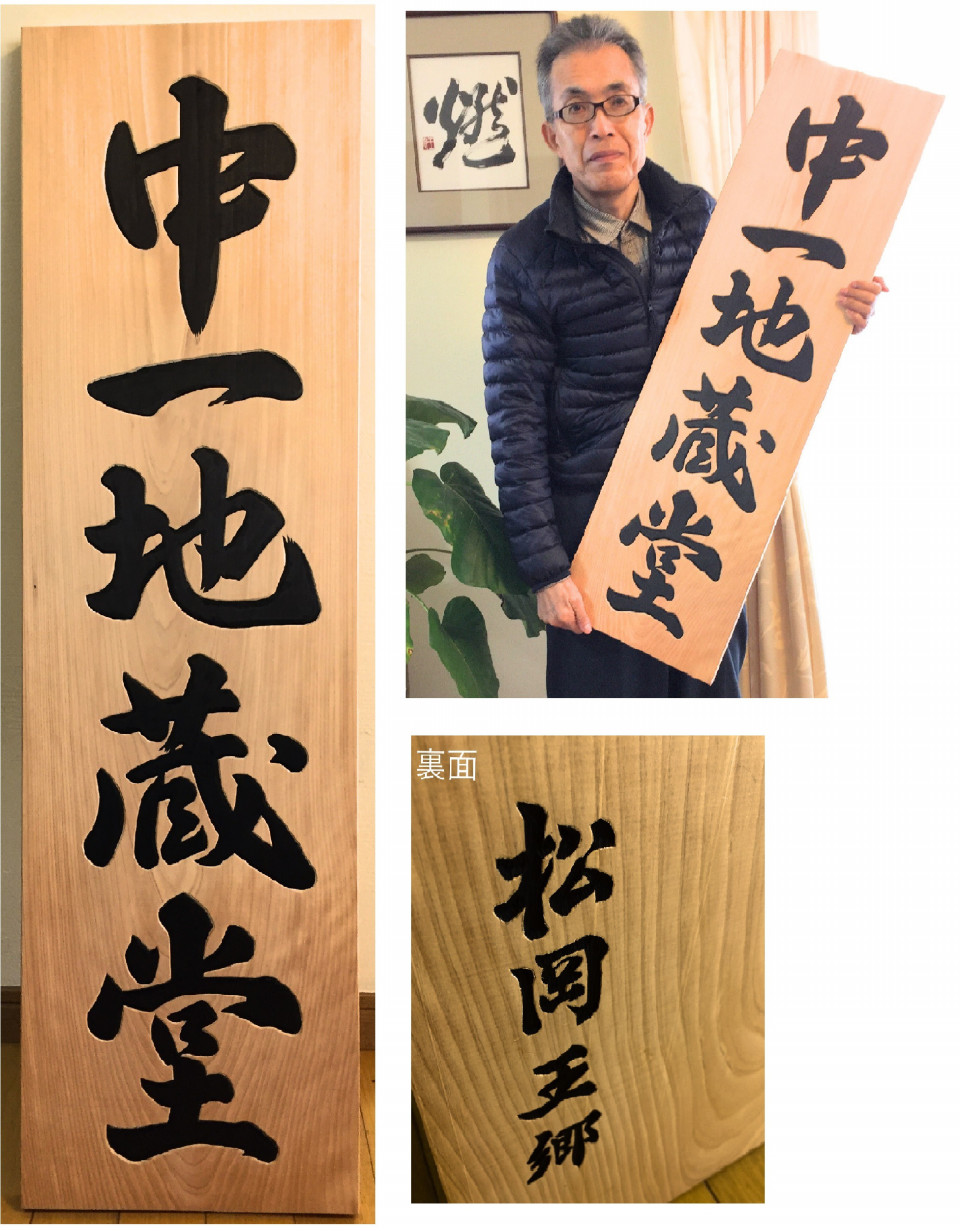 中一地蔵堂
燃
中一地蔵堂
裏面
松岡王郷